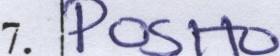 7. POSHO